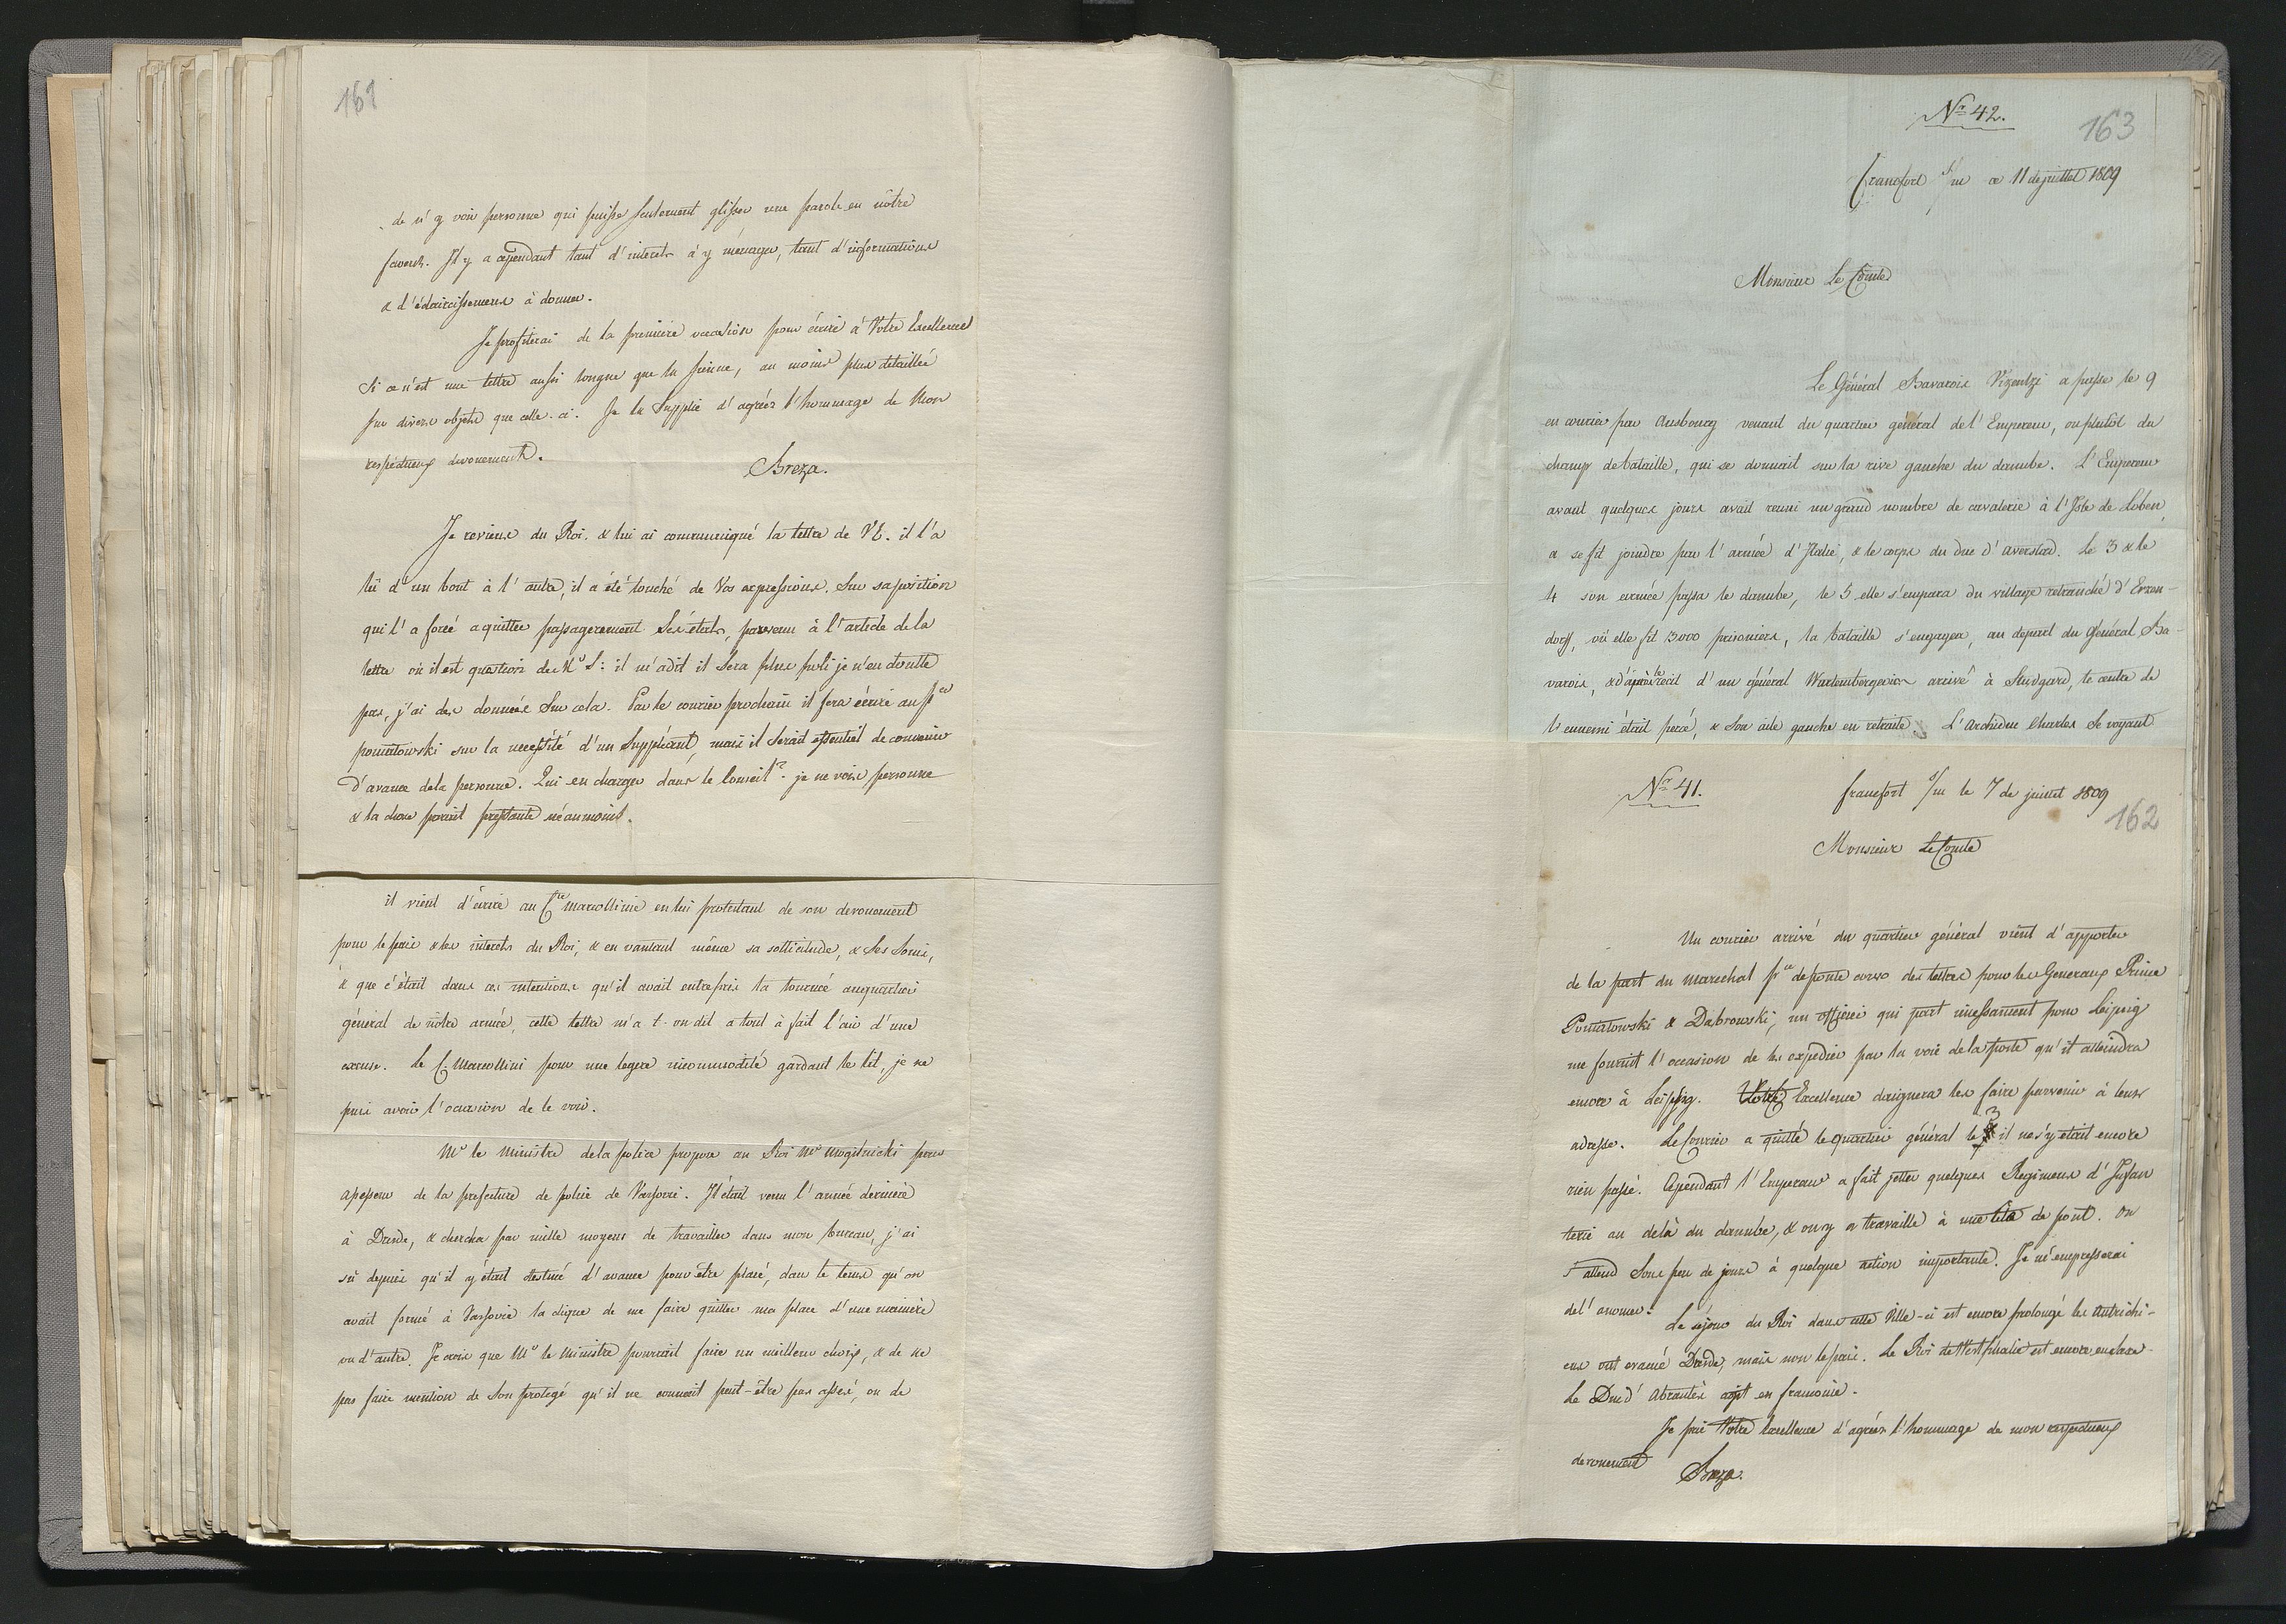 161
de n'y voir personne qui puisse seulement glisser une parole en nôtre
faveur. Il y a cependant tant d'interets à y ménager, tant d'informations
& d'éclaircissemens à donner.
Je profiterai de la premiere occasion pour écrire à Votre Excellence
Si ce n'est une lettre aussi longue que la sienne, au moins plus detaillée
sur divers objets que celle-ci. Je la Supplie d'agréer l'hommage de Mon
respectueux devouement.
Breza.
Je reviens du Roi. & lui ai communiqué la lettre de VE. il l'a
lû d'un bout à l'autre, il a été touché de Vos expressions. Sur sa position
qui l'a forcé a quitter passagerement Ses états, parvenu à l'article de la
lettre où il est question de Mr S: il m'a dit il sera plus poli je n'en doutte
pas, j'ai des données Sur cela. Par le courier prochain il fera écrire au Pce
poniatowski sur la necessité d'un Suppléant, mais il Serait essentiel de convenir
d'avance de la personne. Qui en charger dans le Conseil? je ne vois personne
& la chose parait pressante néanmoins.
il vient d'écrire au Cte marcollini en lui protestant de son devouement
pour le païs & les interets du Roi, & en vantant même sa sollicitude, & Ses Soins,
& que c'était dans ces intentions qu'il avait entrepris la tournée au quartier
général de nôtre armée, cette lettre m'a t-on dit a tout à fait l'air d'une
excuse. Le C. Marcollini pour une legere incommodité gardant le lit, je ne
puis avoir l'occasion de le voir.
Mr le Ministre de la police propose au Roi Mr Mogilnicki pour
assesseur de la prefecture de police de Varsovie. Il était venu l'année derniere
à Dresde, & chercha par mille moyens de travailler dans mon bureau, j'ai
sû depuis qu'il y était destiné d'avance pour être placé, dans le tems qu'on
avait formé à Varsovie la clique de me faire quitter ma place d'une maniere
ou d'autre. Je crois que Mr le Ministre pourrait faire un meilleur choix, & de ne
pas faire mention de Son protegé qu'il ne connait peut-être pas assez, ou de
Nr 42.
163
Francfort s/m ce 11 de juillet 1809
Monsieur Le Comte
Le Général Bavarois Vizentzi a passé le 9
en courier par Ausbourg venant du quartier général de l'Empereur, ou plutôt du
champ de bataille, qui se donnait sur la rive gauche du danube. L'Empereur
avant quelques jours avait reuni un grand nombre de cavalerie à l'Isle de Loben
& se fit joindre par l'armée d'Italie, & le corps du Duc d'Averstad. Le 3 & le
4 son armée passa le danube, le 5 elle s'empara du village retranché d'Erzen-
dorff, où elle fit 3000 prisoniers, la bataille s'engagea, au depart du Général Ba-
varois, & d'après le recit d'un général Wartembergeois arrivé à Studgard, le centre de
l'ennemi était percé, & Son aile gauche en retraite. L'Archiduc Charles Se voyant
Nr 41.
francfort s/m le 7 de juillet 1809
162
Monsieur Le Comte
Un courier arrivé du quartier général vient d'apporter
de la part du Marechal Pce de ponte corvo des lettres pour les Generaux Prince
Poniatowski & Dabrowski, un officier qui part incessament pour Leipzig
me fournit l'occasion de les expedier par la voie de la poste qu'il atteindra
encore à Leipzig. Votre Excellence daignera les faire parvenir à leur
adresse. Le Courier a quitté le quartier général le 3 il ne s'y était encore
rien passé. Cependant l'Empereur a fait jetter quelques Regimens d'Infan
terie au delà du danube, & on y a travaillé à une tête de pont. On
s'attend Sous peu de jours à quelque action importante. Je m'empresserai
de l'anoncer.
Le séjour du Roi dans cette Ville-ci est encore prolongé les Autrichi-
ens ont evacué Dresde, mais non le païs. Le Roi de Westphalie est encore en Saxe.
Le Duc d'Abrantes agit en franconie.
Je prie Votre Excellence d'agréer l'hommage de mon respectueux
devouement
Breza.